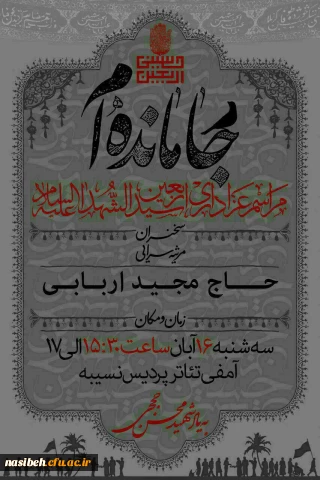 حسینی
اربعین
جامانده‌ام
مراسم عزاداری اربعین سیدالشهدا علیه‌السلام
سخنران
مرثیه سرائی
حاج مجید اربابی
زمان و مکان
سه شنبه ۱۶ آبان ساعت ۱۵:۳۰ الی ۱۷
آمفی تئاتر پردیس نسیبه
به یاد شهید محسن حججی
nasibeh.cfu.ac.ir